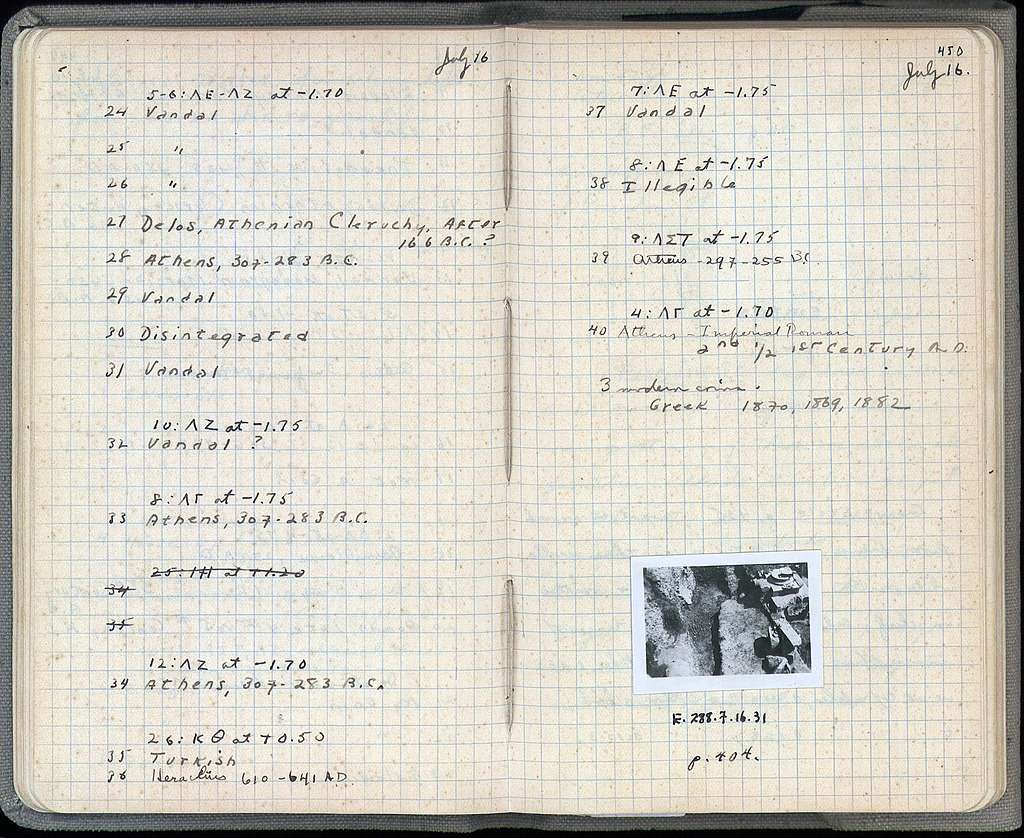 July 16
5-6: ΛE-ΛZ at -1.70
24 Vandal
25 "
26 "
27 Delos, Athenian Cleruchy, After
166 B.C. ?
28 Athens, 307-283 B.C.
29 Vandal
30 Disintegrated
31 Vandal
10: ΛZ at -1.75
32 Vandal ?
8: ΛΓ at -1.75
33 Athens, 307-283 B.C.
25: ΙΗ at +1.20
34
35
12: ΛZ at -1.70
34 Athens, 307-283 B.C.
26: Κ Θ at +0.50
35 Turkish
36 Heraclius 610-641 A.D.
450
July 16.
7: ΛE at -1.75
37 Vandal
8: ΛE at -1.75
38 Illegible
9: ΛΣΤ at -1.75
39 Athens -297-255 B.C.
4: ΛΓ at -1.70
40 Athens - Imperial Roman
2nd 1/2 1st Century A.D.
3 modern coins.
Greek 1870, 1869, 1882
E.288.7.16.31
p. 404.